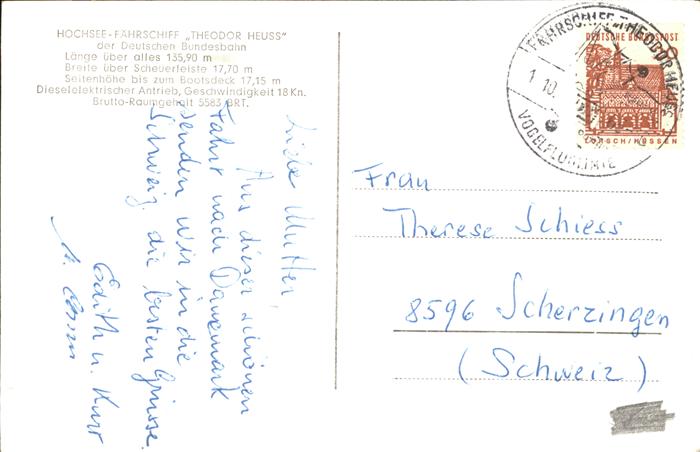 HOCHSEE-FÄHRSCHIFF „THEODOR HEUSS"
der Deutschen Bundesbahn
Länge über alles 135,90 m
Breite über Scheuerleiste 17,70 m
Seitenhöhe bis zum Bootsdeck 17,15 m
Dieselelektrischer Antrieb, Geschwindigkeit 18 Kn.
Brutto-Raumgehalt 5583 BRT.
Liebe Mutter,
Aus dieser schönen
Fahrt nach Dänemark
senden wir in die
Schweiz die besten Grüsse.
Edith u. Kurt
FÄHRSCHIFF THEODOR HEUSS
1. 10.
VOGELFLUGLINIE
DEUTSCHE BUNDESPOST
LORSCH/HESSEN
Frau
Therese Schiess
8596 Scherzingen
(Schweiz)